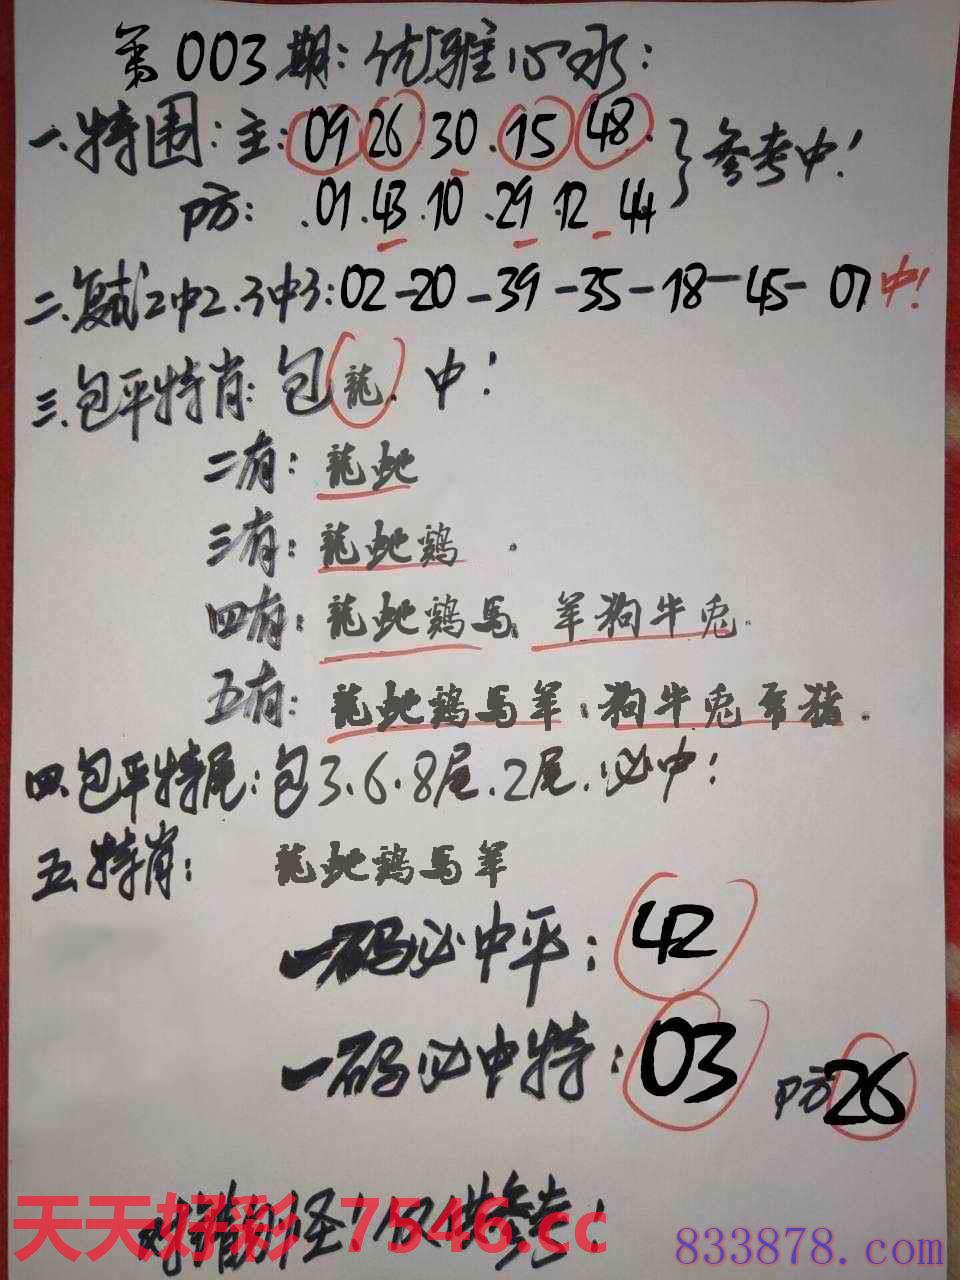 第003期：优雅心水：
一.特围：主：09 26.30.15 48.
防：.01.43.10.29.12.44
}参考中！
二.复式2中2.3中3：02-20-39-35-18-45-07中！
三.包平特肖：包龍.中！
二有：龍虵
三有：龍虵鷄.
四有：龍虵鷄馬.羊狗牛兎.
五有：龍虵鷄馬羊.狗牛兎 猪.
四.包平特尾：包3.6.8尾.2尾.必中！
五.特肖：龍虵鷄馬羊
一码必中平：42
一码必中特：03 防26
对错勿怪！仅供参考！
天天好彩 7546.cc
833878.com